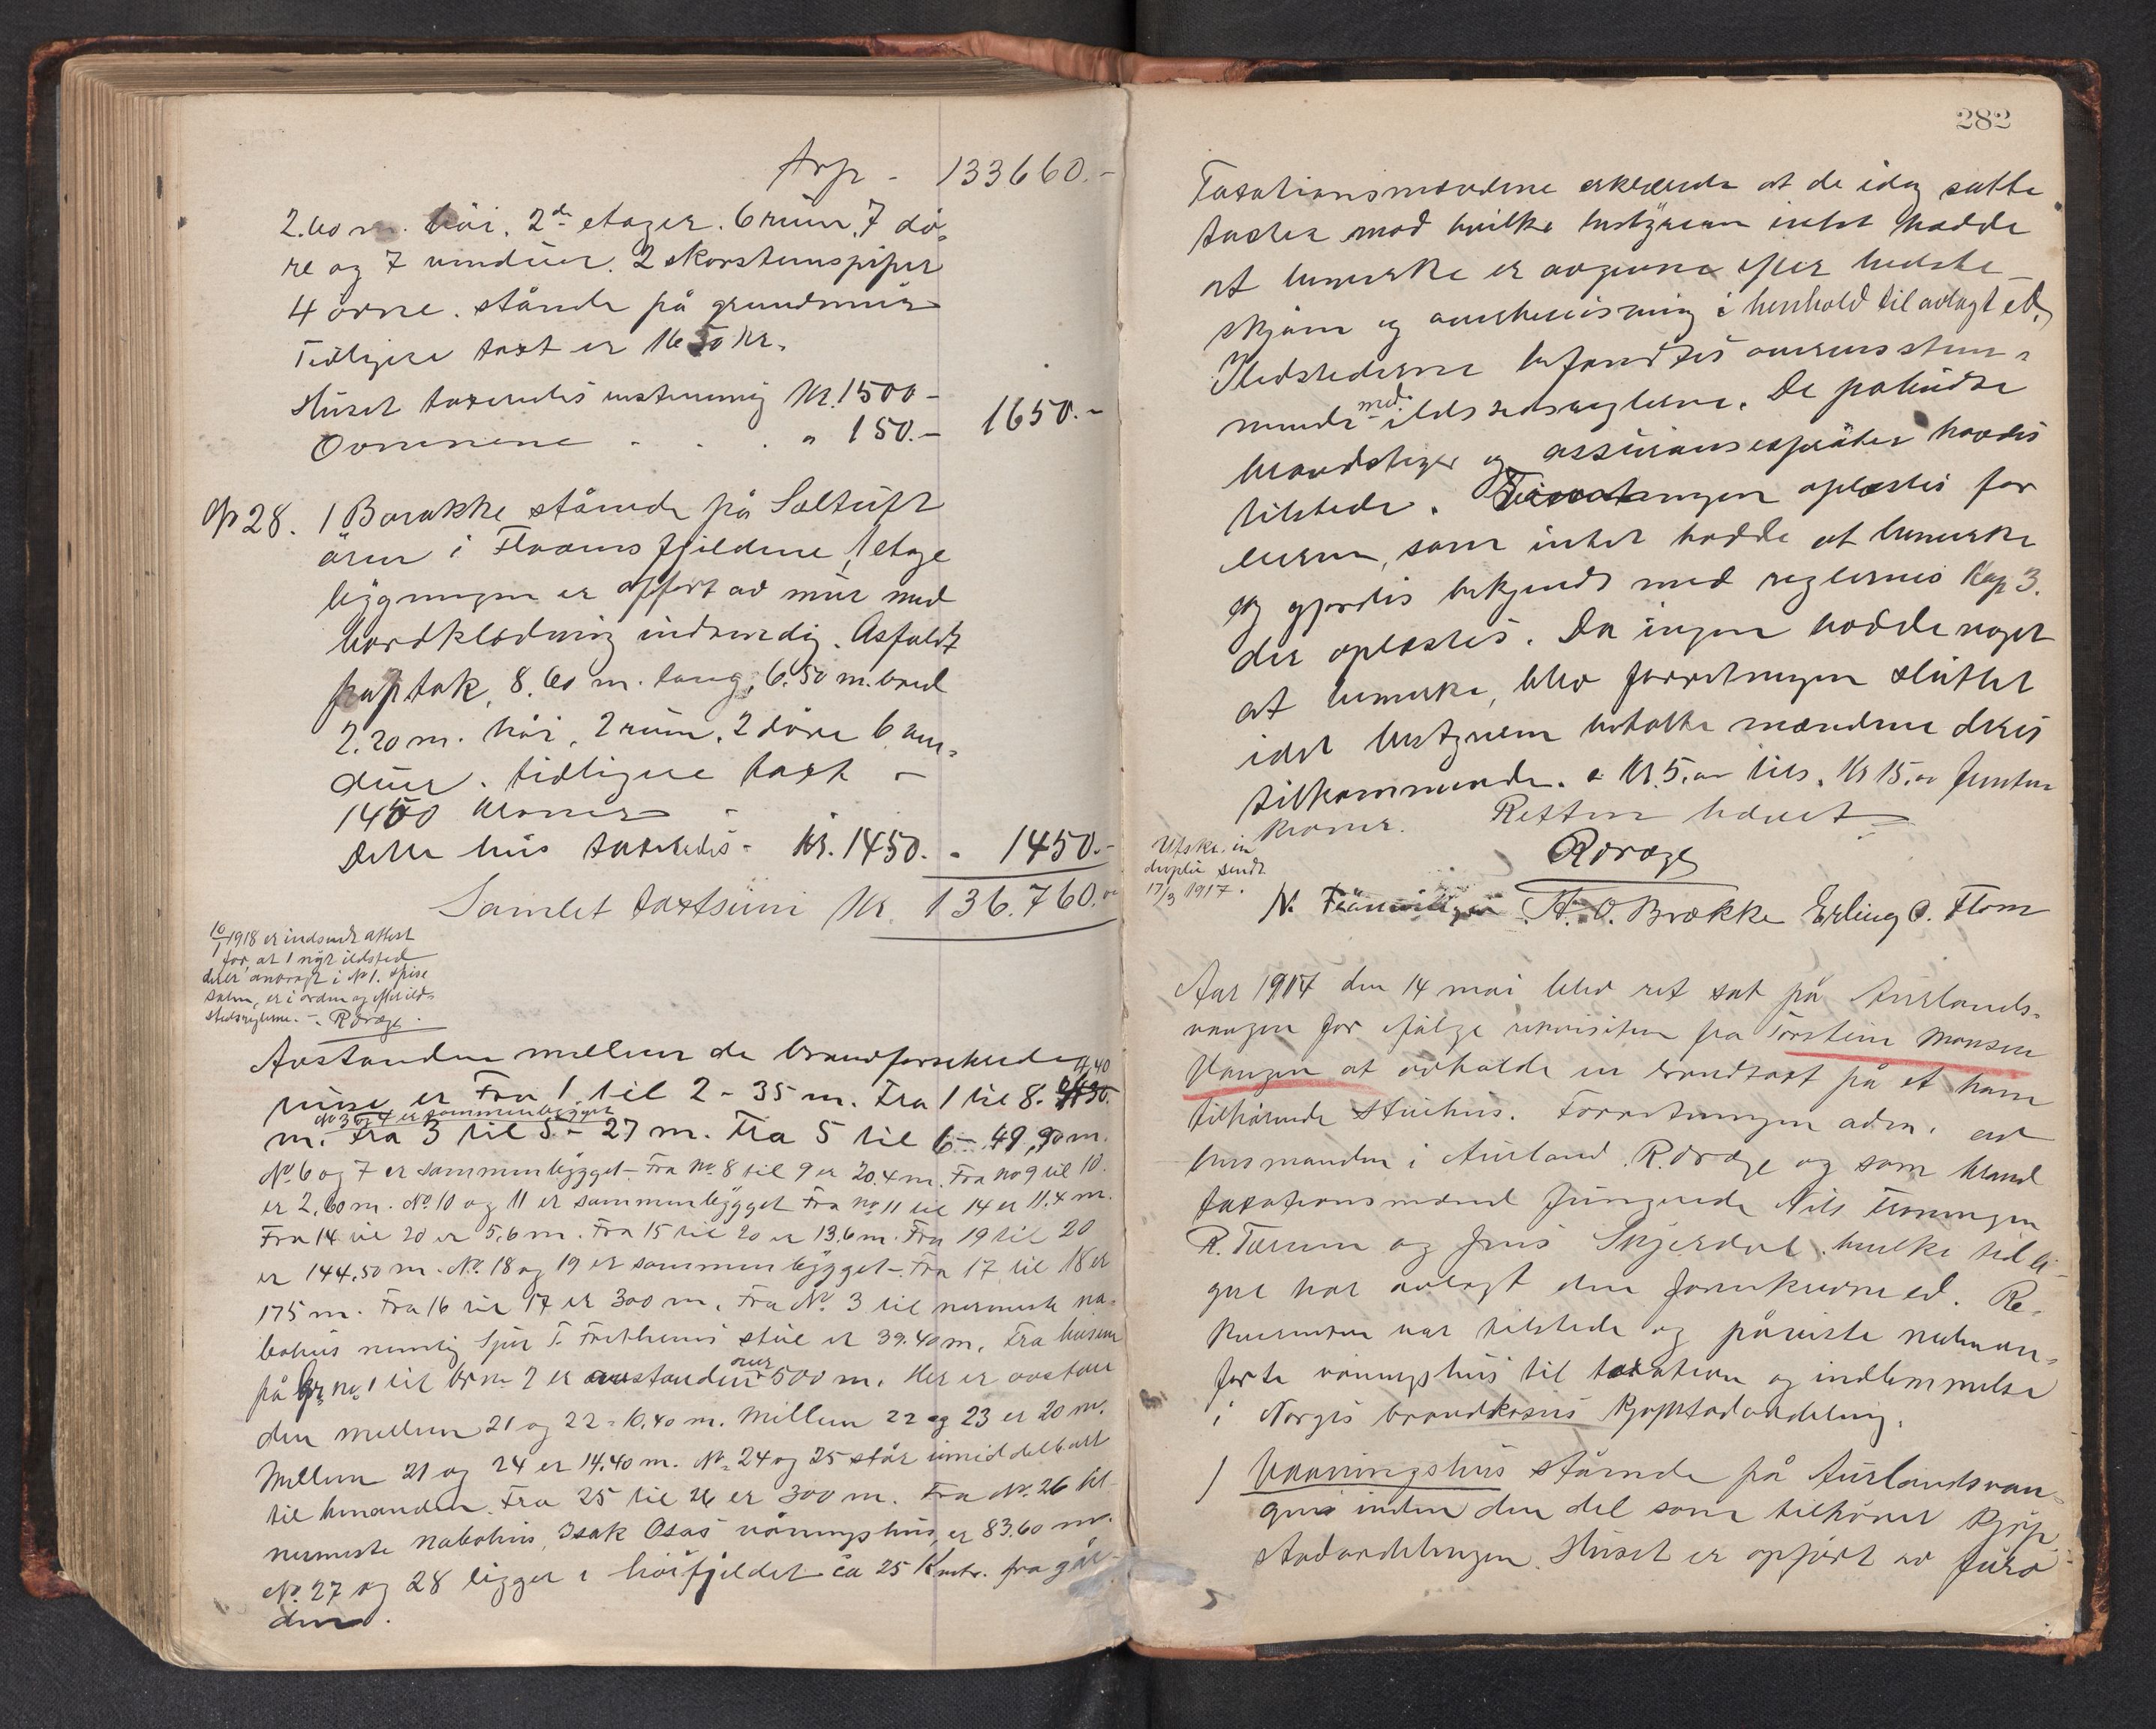 Trp - 133660.-
2.60 m. höi. 2de etager. 6 rum, 7 dö-
re og 7 vinduer. 2 skorstenspiper
4 ovne. stånde på grundmur
Tidligere taxt er 1650 kr.
Huset taxeredes enstemmig Kr. 1500 -
Ovnene . . . " 150.- 1650.-
No 28. 1 Barakke stående på Seltuft
ören i Flaamsfjeldene, 1 etage
bygningen er opfört av mur med
bordklædning indvendig. Asfaldt
paptak, 8.60 m. lang, 6.50 m. bred
2.20 m. höi, 2 rum, 2 döre 6 vin-
duer. tidligere taxt -
1450 kroner -
Dette hus taxeredes - Kr. 1450. - 1450.-
Samlet taxtsum Kr. 136.760.00
10/1 1918 er indsendt attest
for at 1 nyt ildsted
der er anbragt i No 1. spise
salen, er i orden og efter ild-
stedsreglerne. - R Dræge.
Avstanden mellem de brandforsikrede
huse er Fra 1 til 2 - 35 m. Fra 1 til 8. 4,40
No 3 og 4 er sammenbygget
m. Fra 3 til 5 - 27 m. Fra 5 til 6 - 49,90 m.
No 6 og 7 er sammenbygget - Fra No 8 til 9 er 20.4 m. Fra no 9 til 10.
er 2,60 m. No 10 og 11 er sammenbygget Fra no 11 til 14 er 11.4 m.
Fra 14 til 20 er 5,6 m. Fra 15 til 20 er 13.6 m. Fra 19 til 20
er 144,50 m. No 18 og 19 er sammenbygget - Fra 17 til 18 er
175 m. Fra 16 til 17 er 300 m. Fra No. 3 til nermeste na-
bohus nemlig Sjur T. Fretheims stue er 39.40 m. Fra husene
på Br no 1 til br no 2 er avstanden over 500 m. Her er avstan
den mellem 21 og 22 = 10,40 m. Mellem 22 og 23 er 20 m.
Mellem 21 og 24 er 14.40 m. No 24 og 25 står umiddelbart
til hinanden. Fra 25 til 26 er 300 m. Fra No. 26 til
nermeste nabohus, Isak Osas våningshus, er 83.60 m.
No. 27 og 28 ligger i höifjeldet ca 25 Kmtr. fra går-
den.
282
Taxationsmændene erklærede at de idag satte
taxter mod hvilke bestyreren intet hadde
at bemerke er avgivne efter bedste
skjön og overbevisning i henhold til avlagt ed.
Ildstederne befandtes overensstem-
mende med ildstedsreglerne. De påbudte
brandstiger og assuransesprøiter havdes
tilstede. Forretningen oplæstes for
eieren, som intet hadde at bemerke
og gjordes bekjendt med reglernes Kap 3.
der oplæstes. Da ingen hadde noget
at bemerke, blev forretningen sluttet
idet bestyreren betalte mændene deres
tilkommende. a Kr. 5.00 tils. Kr 15.00 femten
kroner. Retten hævet
Utskr. in
duplo sendt
17/3 1917.
R Dræge
N. A. O. Brække Erling O. Flom
Aar 1917 den 14 mai blev ret sat på Aurlands-
vangen for ifölge rekvisition fra Torstein Monsen
Vangen at avholde en brandtaxt på et ham
tilhörende stuehus. Forretningen adm. av
lensmanden i Aurland R. Dræge og som brand
taxationsmænd fungerede Nils
R. Terum og Jens Skjerdal hvilke tidli-
gere har avlagt den foreskrevne ed. Re-
kvirenten var tilstede og påviste nedenan-
förte våningshus til taxation og indlemmelse
i Norges brandkasses Kjøpstadavdeling.
1 Vaaningshus stående på Aurlandsvan-
gen inden den del som tilhörer Kjøp
stadavdelingen. Huset er opført av furu